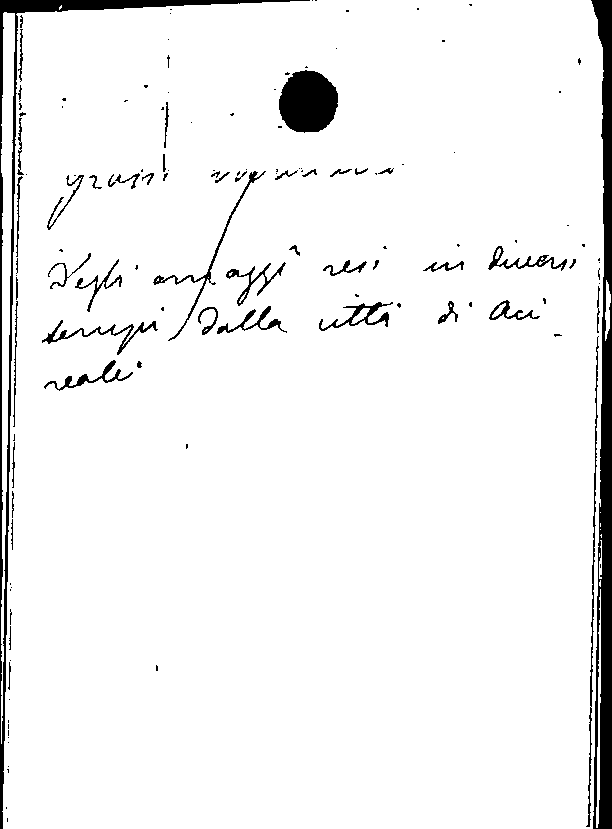 grassi
Degli omaggi resi in diversi
tempi dalla città di Aci_
reale